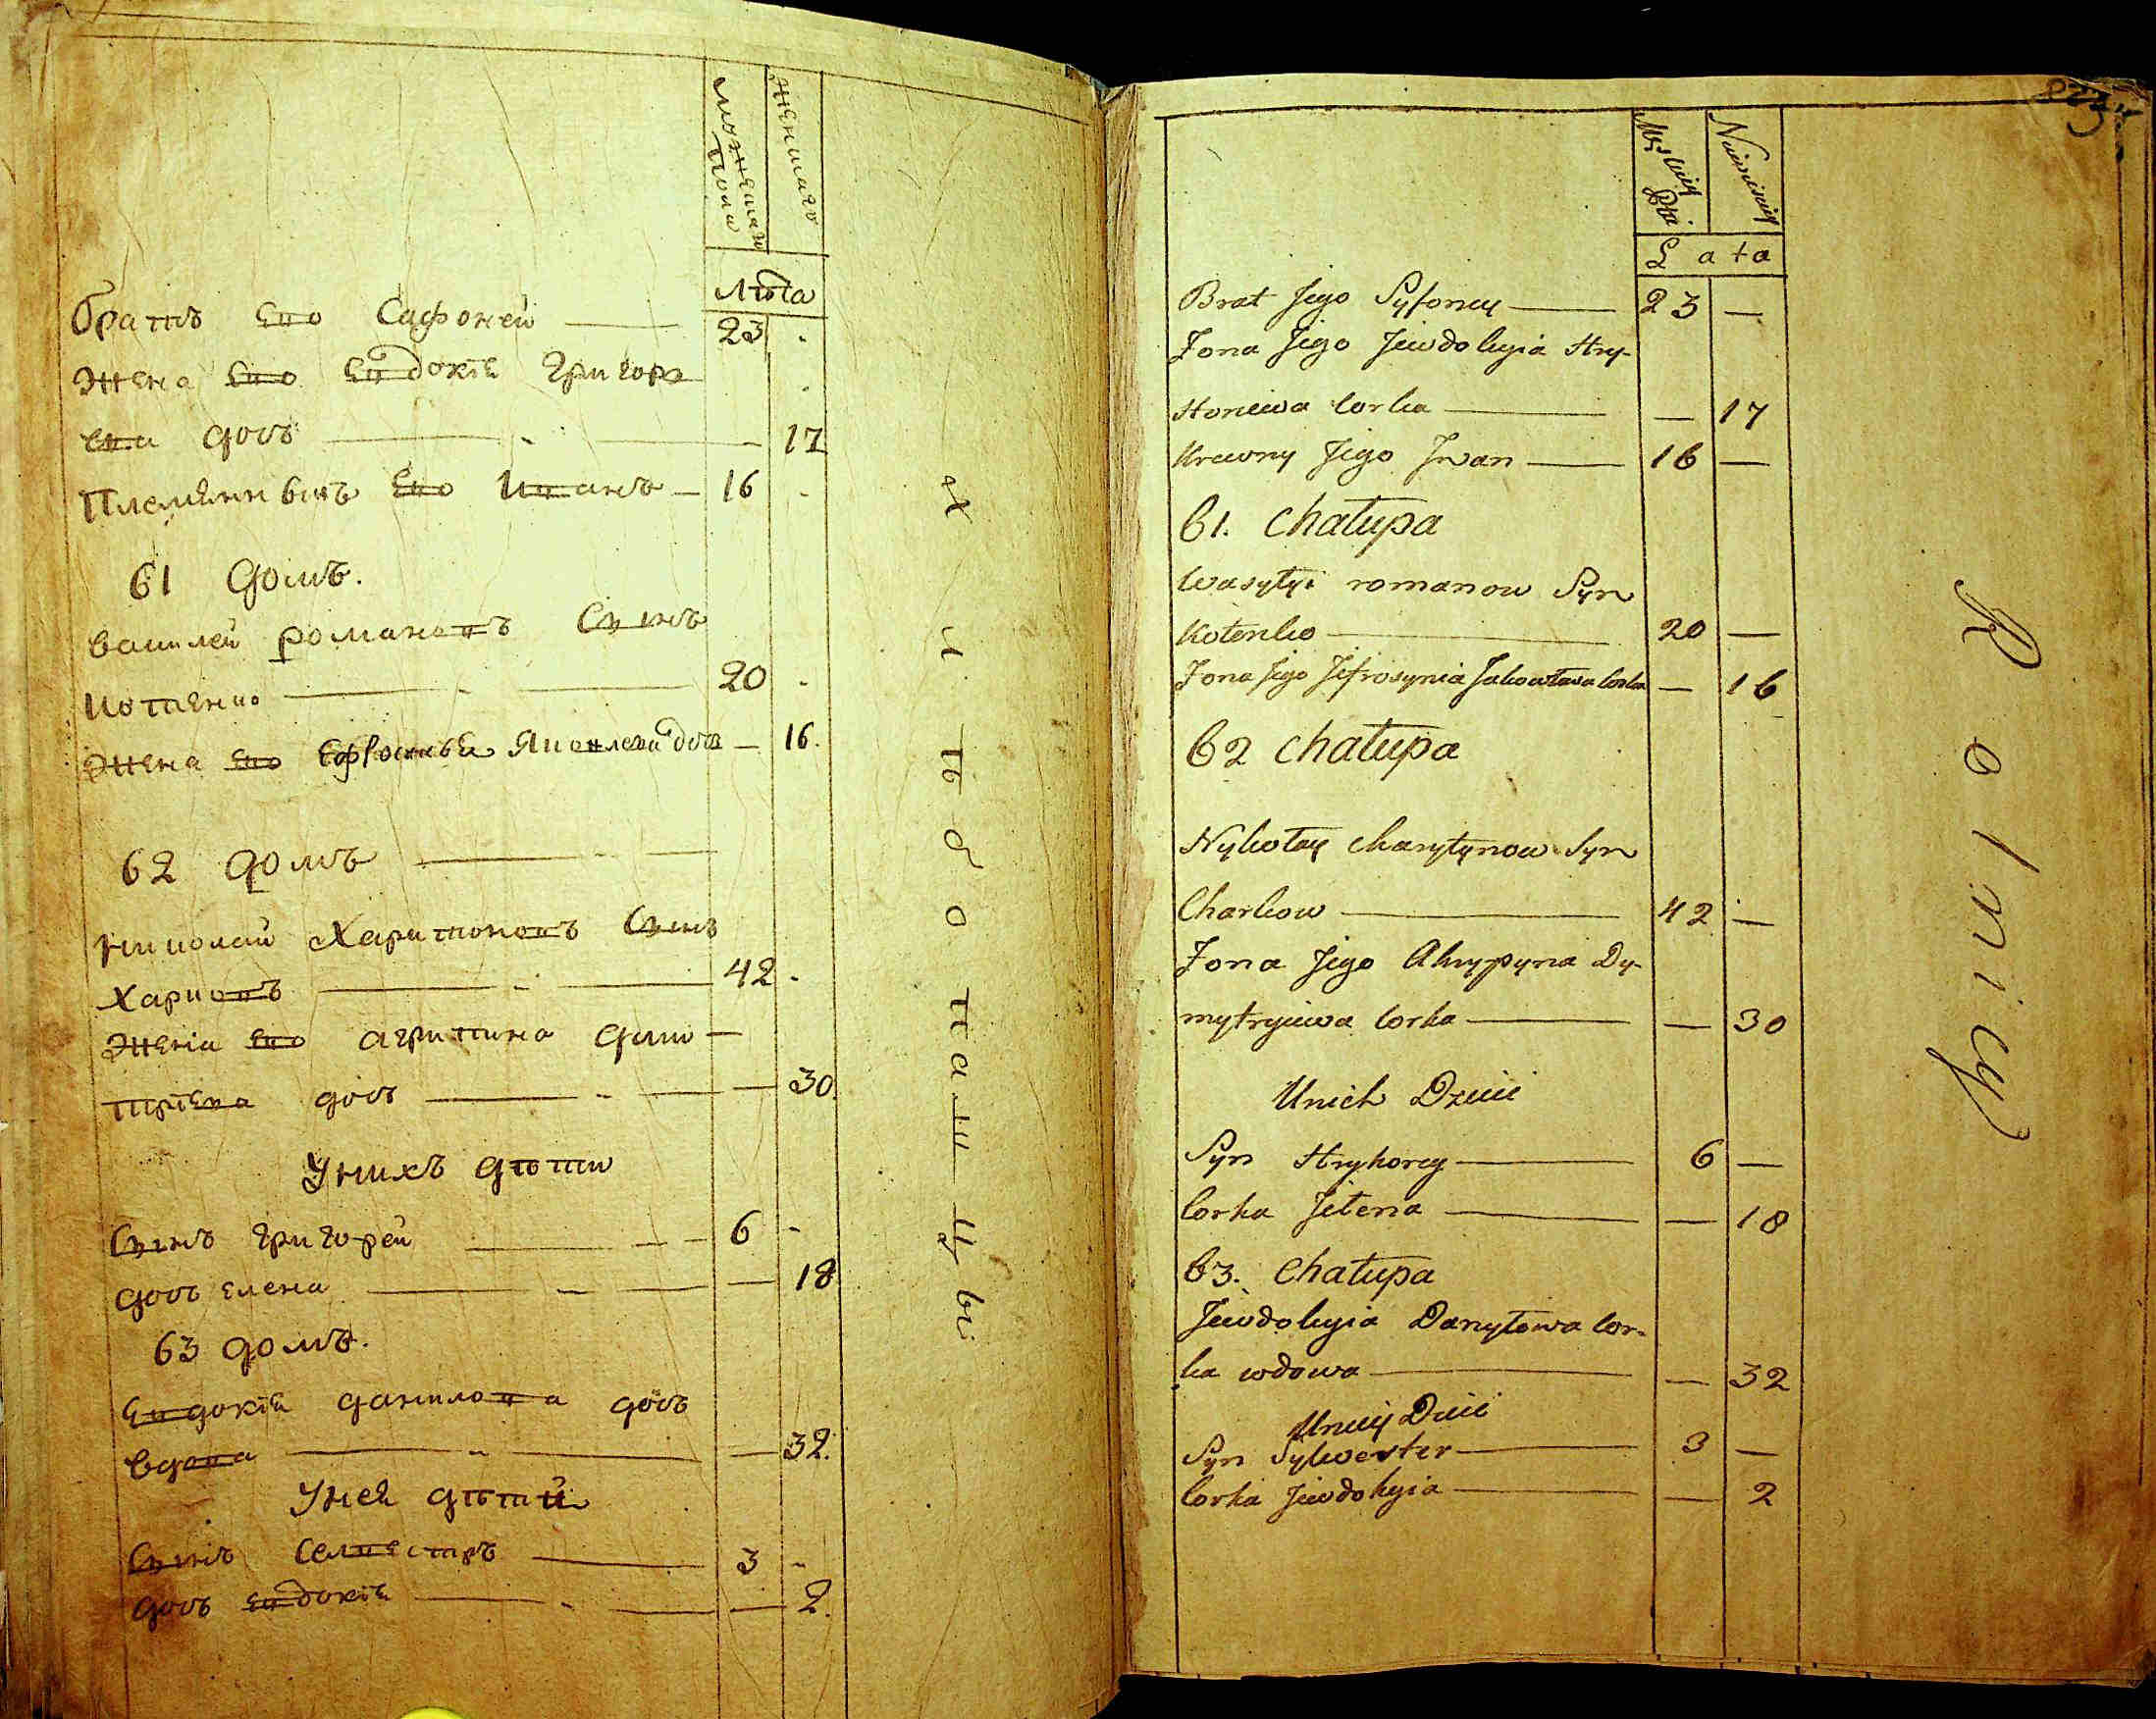 мужеска
пола
женскаго
Лѣта
братъ его Сафоней — 23 .
жена его евдокіѣ григорь
ева дочь — 17
Племянникъ его Иванъ — 16 .
61 домъ.
василей романовъ Сынъ
котенко — 20 .
жена его Ефросинья Яковлева дочь — 16.
62 домъ —
николай Харитоновъ Сынъ
Харковъ — 42 .
жена его агрипина дми —
тріева дочь — 30
Унихъ дѣти
Сынъ григорей — 6 -
дочь елена — 18
63 домъ.
евдокіѣ данилова дочь
вдова — 32.
Уней дѣтій
Сынъ селвестръ — 3 -
дочь евдокіѣ — 2.
Męskiey
Płci
Niewieściey
Lata
Brat Jego Syfoney — 23 —
Żona Jego Jewdokyia Hry-
Horiewa Corka — — 17
Krewny Jego Jwan — 16 —
61. Chałupa
Wasyłyi romanow Syn
Kotenko — 20 —
Żona Jego Jefrosynia Jakowława Corka — 16
62 Chałupa
Nykołay Charytynow Syn
Charkow — 42 —
Żona Jego Ahrypyna Dy-
mytryiewa Corka — — 30
Unich Dzieci
Syn Hryhorey — 6 —
Corka Jełena — — 18
63. Chałupa
Jewdokyia Danyłowa Cor-
ka wdowa — — 32
Uniey Dzieci
Syn Sylwester — 3 —
Corka Jewdokyia — — 2
Rolnicy